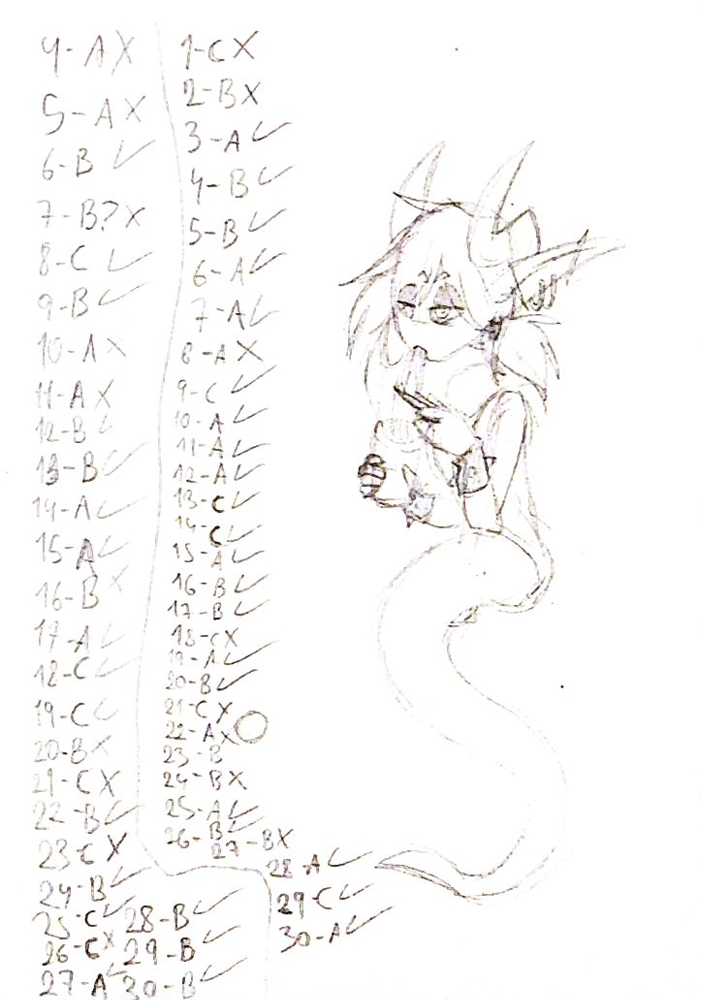 4-A X
5-A X
6-B ✓
7-B? X
8-C ✓
9-B ✓
10-A X
11-A X
12-B ✓
13-B ✓
14-A ✓
15-A ✓
16-B X
17-A ✓
18-C ✓
19-C ✓
20-B X
21-C X
22-B ✓
23-C X
24-B ✓
25-C ✓
26-C X
27-A ✓
28-B ✓
29-B ✓
30-B ✓
1-C X
2-B X
3-A ✓
4-B ✓
5-B ✓
6-A ✓
7-A ✓
8-A X
9-C ✓
10-A ✓
11-A ✓
12-A ✓
13-C ✓
14-C ✓
15-A ✓
16-B ✓
17-B ✓
18-C X
19-A ✓
20-B ✓
21-C X
22-A X
23-B
24-B X
25-A ✓
26-B ✓
27-B X
28-A ✓
29-C ✓
30-A ✓